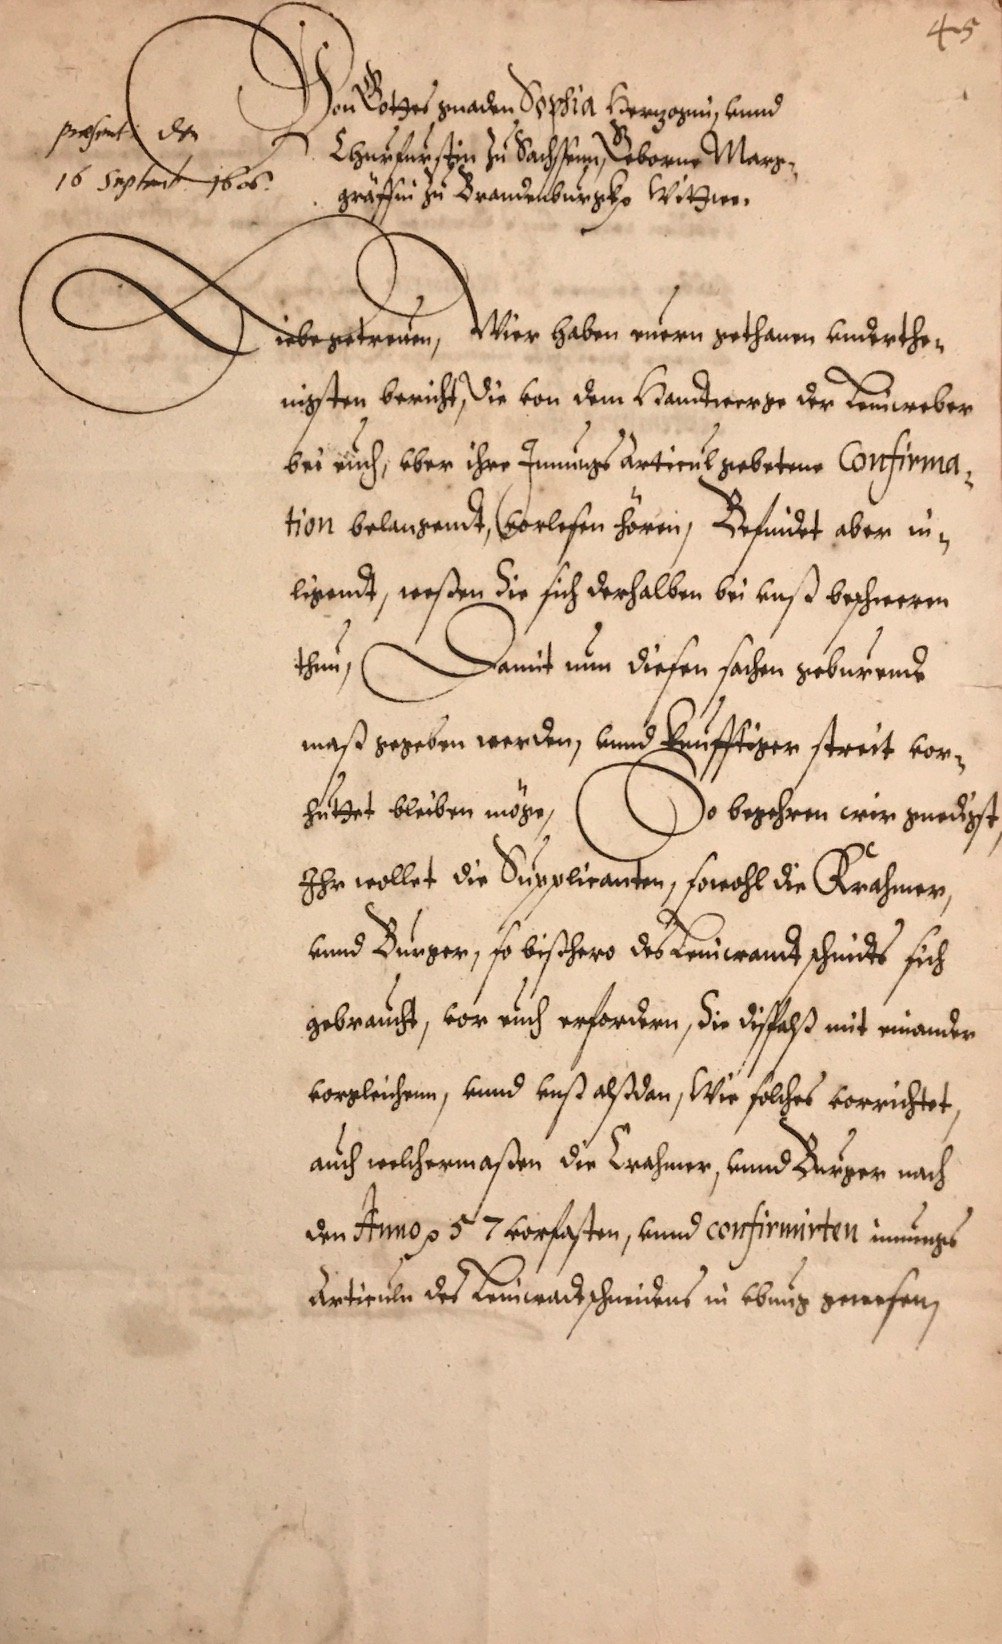 45
præsent. den
16 Septemb. 1606.
Von Gottes gnaden Sophia Hertzogin, vnnd
Churfurstin zu Sachssenn, Geborne Marg-
gräffin zu Brandenburgk, Wittwe.
Liebe getreuen, Wier haben euern gethanen vnderthe-
nigsten bericht, die von dem Handtwerge der Leinweber
bei euch, vber ihre Innungs Articul gebetene Confirma-
tion belangendt, vorlesen hören, Befindet aber in-
ligendt, weßen Sie sich derhalben bei vnß beschweren
thun, Damit nun diesen sachen geburende
maß gegeben werden, vnnd kunfftiger streit vor-
huttet bleiben möge, So begehren wir gnedigst,
Ihr wollet die Supplicanten, sowohl die Krahmer,
vnnd Burger, so bißhero des Leinwandt schnidts sich
gebraucht, vor euch erfordern, Sie dißfalß mit einander
vorgleichenn, vnnd vnß alßdan, Wie solches vorrichtet,
auch welchermaßen die Crahmer, vnnd Burger nach
den Anno 57 vorfasten, vnnd confirmirten innungs
Articuln des Leinwadtschneidens in vbung gewesen,